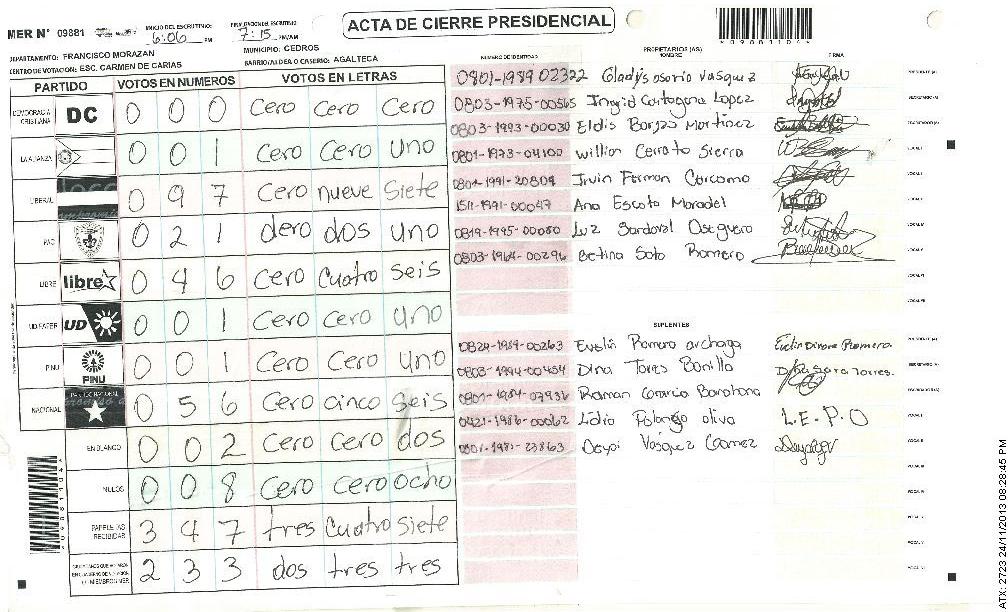 ACTA DE CIERRE PRESIDENCIAL
MER N° 09881
INICIO DEL ESCRUTINIO: 6:06 PM
FINALIZACION DEL ESCRUTINIO 7:15 PM/AM
*09881104*
DEPARTAMENTO: FRANCISCO MORAZAN
MUNICIPIO: CEDROS
CENTRO DE VOTACION: ESC. CARMEN DE CARIAS
BARRIO/ALDEA O CASERIO: AGALTECA
PARTIDO VOTOS EN NUMEROS VOTOS EN LETRAS
DEMOCRACIA CRISTIANA DC 0 0 0 Cero Cero Cero
LA ALIANZA 0 0 1 Cero Cero Uno
LIBERAL 0 9 7 Cero nueve Siete
PAC 0 2 1 dero dos Uno
LIBRE libre 0 4 6 Cero Cuatro seis
UD FAPER UD 0 0 1 Cero Cero Uno
PINU PINU 0 0 1 Cero Cero Uno
NACIONAL 0 5 6 Cero cinco seis
EN BLANCO 0 0 2 Cero Cero dos
NULOS 0 0 8 Cero cero ocho
PAPELETAS RECIBIDAS 3 4 7 tres Cuatro siete
2 3 3 dos tres tres
NUMERO DE IDENTIDAD PROPIETARIOS (AS) NOMBRE FIRMA
0801-1989 02322 Gladys osorio Vasquez PRESIDENTE (A)
0803-1975-00565 Ingrid Cartagena Lopez SECRETARIO (A)
0803-1993-00030 Eldis Borjas Martinez ESCRUTADOR (A)
0801-1973-04100 Willian Cerrato Sierra VOCAL I
0801-1991-20809 Irvin Ferman Carcamo VOCAL II
1511-1991-00047 Ana Escoto Maradel VOCAL III
0819-1995-00080 Luz Sandoval Oseguera VOCAL IV
0803-1964-00296 Betina Soto Romero VOCAL V
VOCAL VI
VOCAL VII
SUPLENTES
0824-1989-00263 Evelin Romero archaga PRESIDENTE (A)
0803-1994-00454 Dina Torres Bonilla SECRETARIO (A)
0801-1984-07936 Raman Barahona ESCRUTADOR (A)
0421-1986-00062 Lidia Polanco oliva L.E.P.O VOCAL I
0801-1981-23863 Deysi Vasquez Gomez VOCAL II
VOCAL III
VOCAL IV
VOCAL V
VOCAL VI
*09881104*
ATX: 2723 24/11/2013 08:28:45 PM